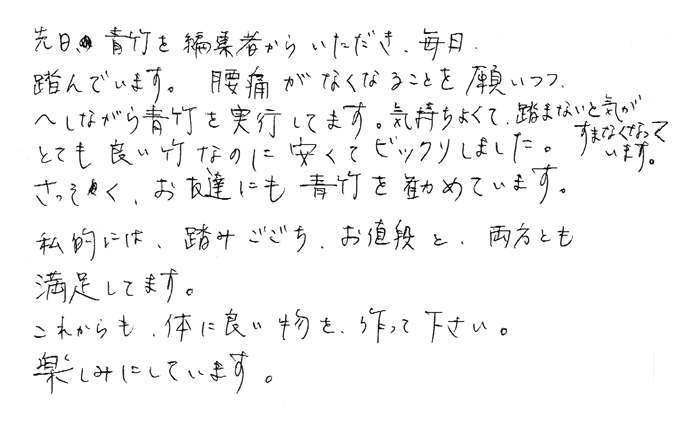 先日、青竹を編集者からいただき、毎日、
踏んでいます。腰痛がなくなることを願いつつ、
へしながら青竹を実行してます。気持ちよくて、踏まないと気が
すまなくなって
います。
とても良い竹なのに安くてビックリしました。
さっそく、お友達にも青竹を勧めています。
私的には、踏みごごち、お値段と、両方とも
満足してます。
これからも、体に良い物を、作って下さい。
楽しみにしています。